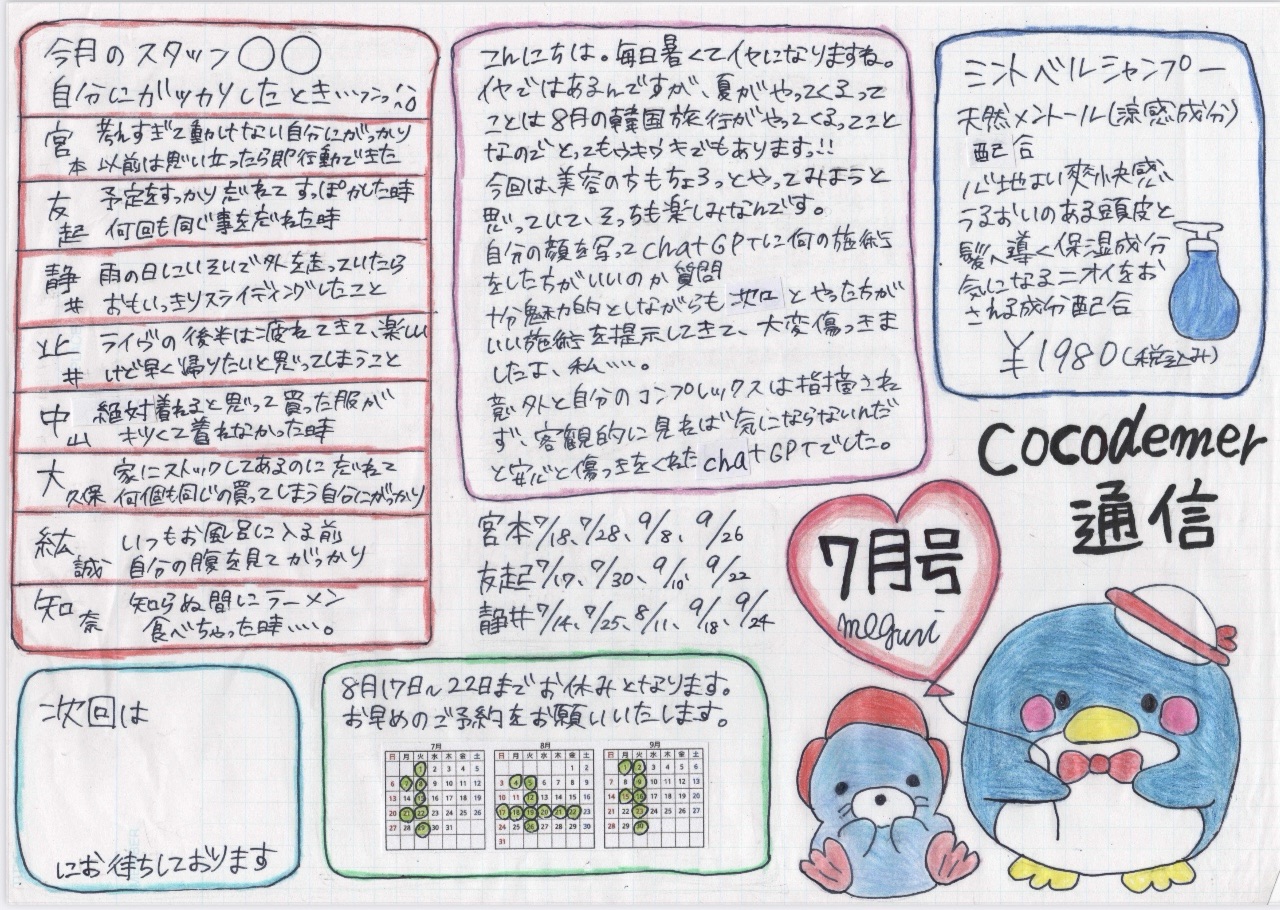 今月のスタッフ〇〇
自分にガッカリしたとき…
宮本 考えすぎて動けない自分にがっかり
以前は思い立ったら即行動できた
友起 予定をすっかり忘れてすっぽかした時
何回も同じ事を忘れた時
静井 雨の日にいそいで外を走っていたら
おもいっきりスライディングしたこと
辻井 ライヴの後半は疲れてきて、楽しい
けど早く帰りたいと思ってしまうこと
中山 絶対着れると思って買った服が
キツくて着れなかった時
大久保 家にストックしてあるのに忘れて
何個も同じの買ってしまう自分にがっかり
紘誠 いつもお風呂に入る前
自分の腹を見てがっかり
知奈 知らぬ間にラーメン
食べちゃった時….。
こんにちは。毎日暑くてイヤになりますね。
イヤではあるんですが、夏がやってくるって
ことは8月の韓国旅行がやってくるってこと
なのでとってもウキウキでもありますっ!!
今回は、美容の方もちょろっとやってみようと
思っていて、そっちも楽しみなんです。
自分の顔を写ってchatGPTに何の施術
をした方がいいのか質問
十分魅力的としながらも とやった方が
いい施術を提示してきて、大変傷つきま
したよ、私….。
意外と自分のコンプレックスは指摘され
ず、客観的に見れば気にならないんだ
と安心と傷つきをくれたchatGPTでした。
ミントベルシャンプー
天然メントール(涼感成分)
配合
心地よい爽快感
うるおいのある頭皮と
髪へ導く保湿成分
気になるニオイをお
さえる成分配合
¥1980(税込み)
Cocodemer
通信
7月号
meguri
宮本7/18、7/28、9/8、9/26
友起7/17、7/30、9/10、9/22
静井7/14、7/25、8/11、9/18、9/24
次回は
にお待ちしております
8月17日〜22日までお休みとなります。
お早めのご予約をお願いいたします。
7月
日 月 火 水 木 金 土
1 2 3 4 5
6 7 8 9 10 11 12
13 14 15 16 17 18 19
20 21 22 23 24 25 26
27 28 29 30 31
8月
日 月 火 水 木 金 土
1 2
3 4 5 6 7 8 9
10 11 12 13 14 15 16
17 18 19 20 21 22 23
24 25 26 27 28 29 30
31
9月
日 月 火 水 木 金 土
1 2 3 4 5 6
7 8 9 10 11 12 13
14 15 16 17 18 19 20
21 22 23 24 25 26 27
28 29 30